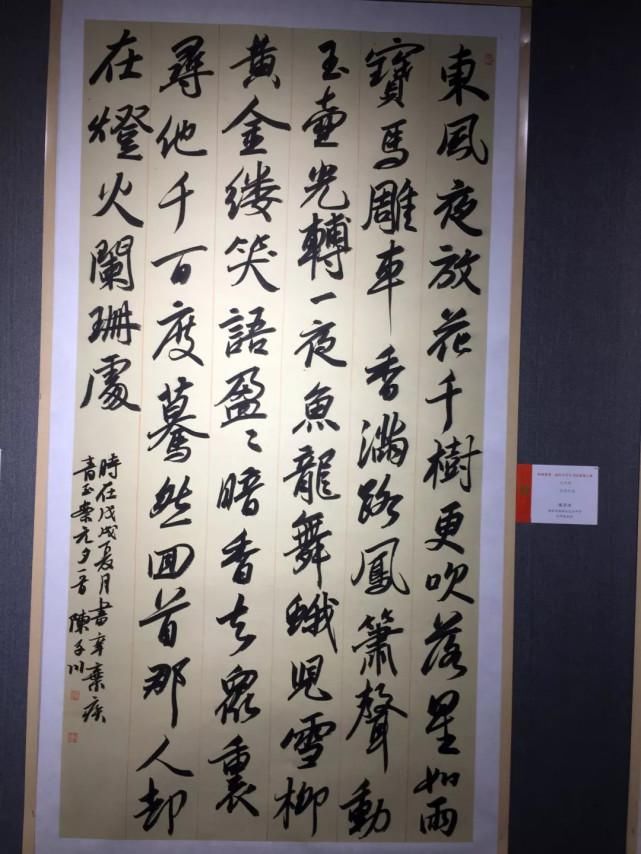 東風夜放花千樹更吹落星如雨
寶馬雕車香滿路鳳簫聲動
玉壺光轉一夜魚龍舞蛾兒雪柳
黄金缕笑語盈〻暗香去眾裏
尋他千百度驀然回首那人却
在燈火闌珊處
時在戊戌夏月書辛棄疾
青玉案元夕一首 陳子川